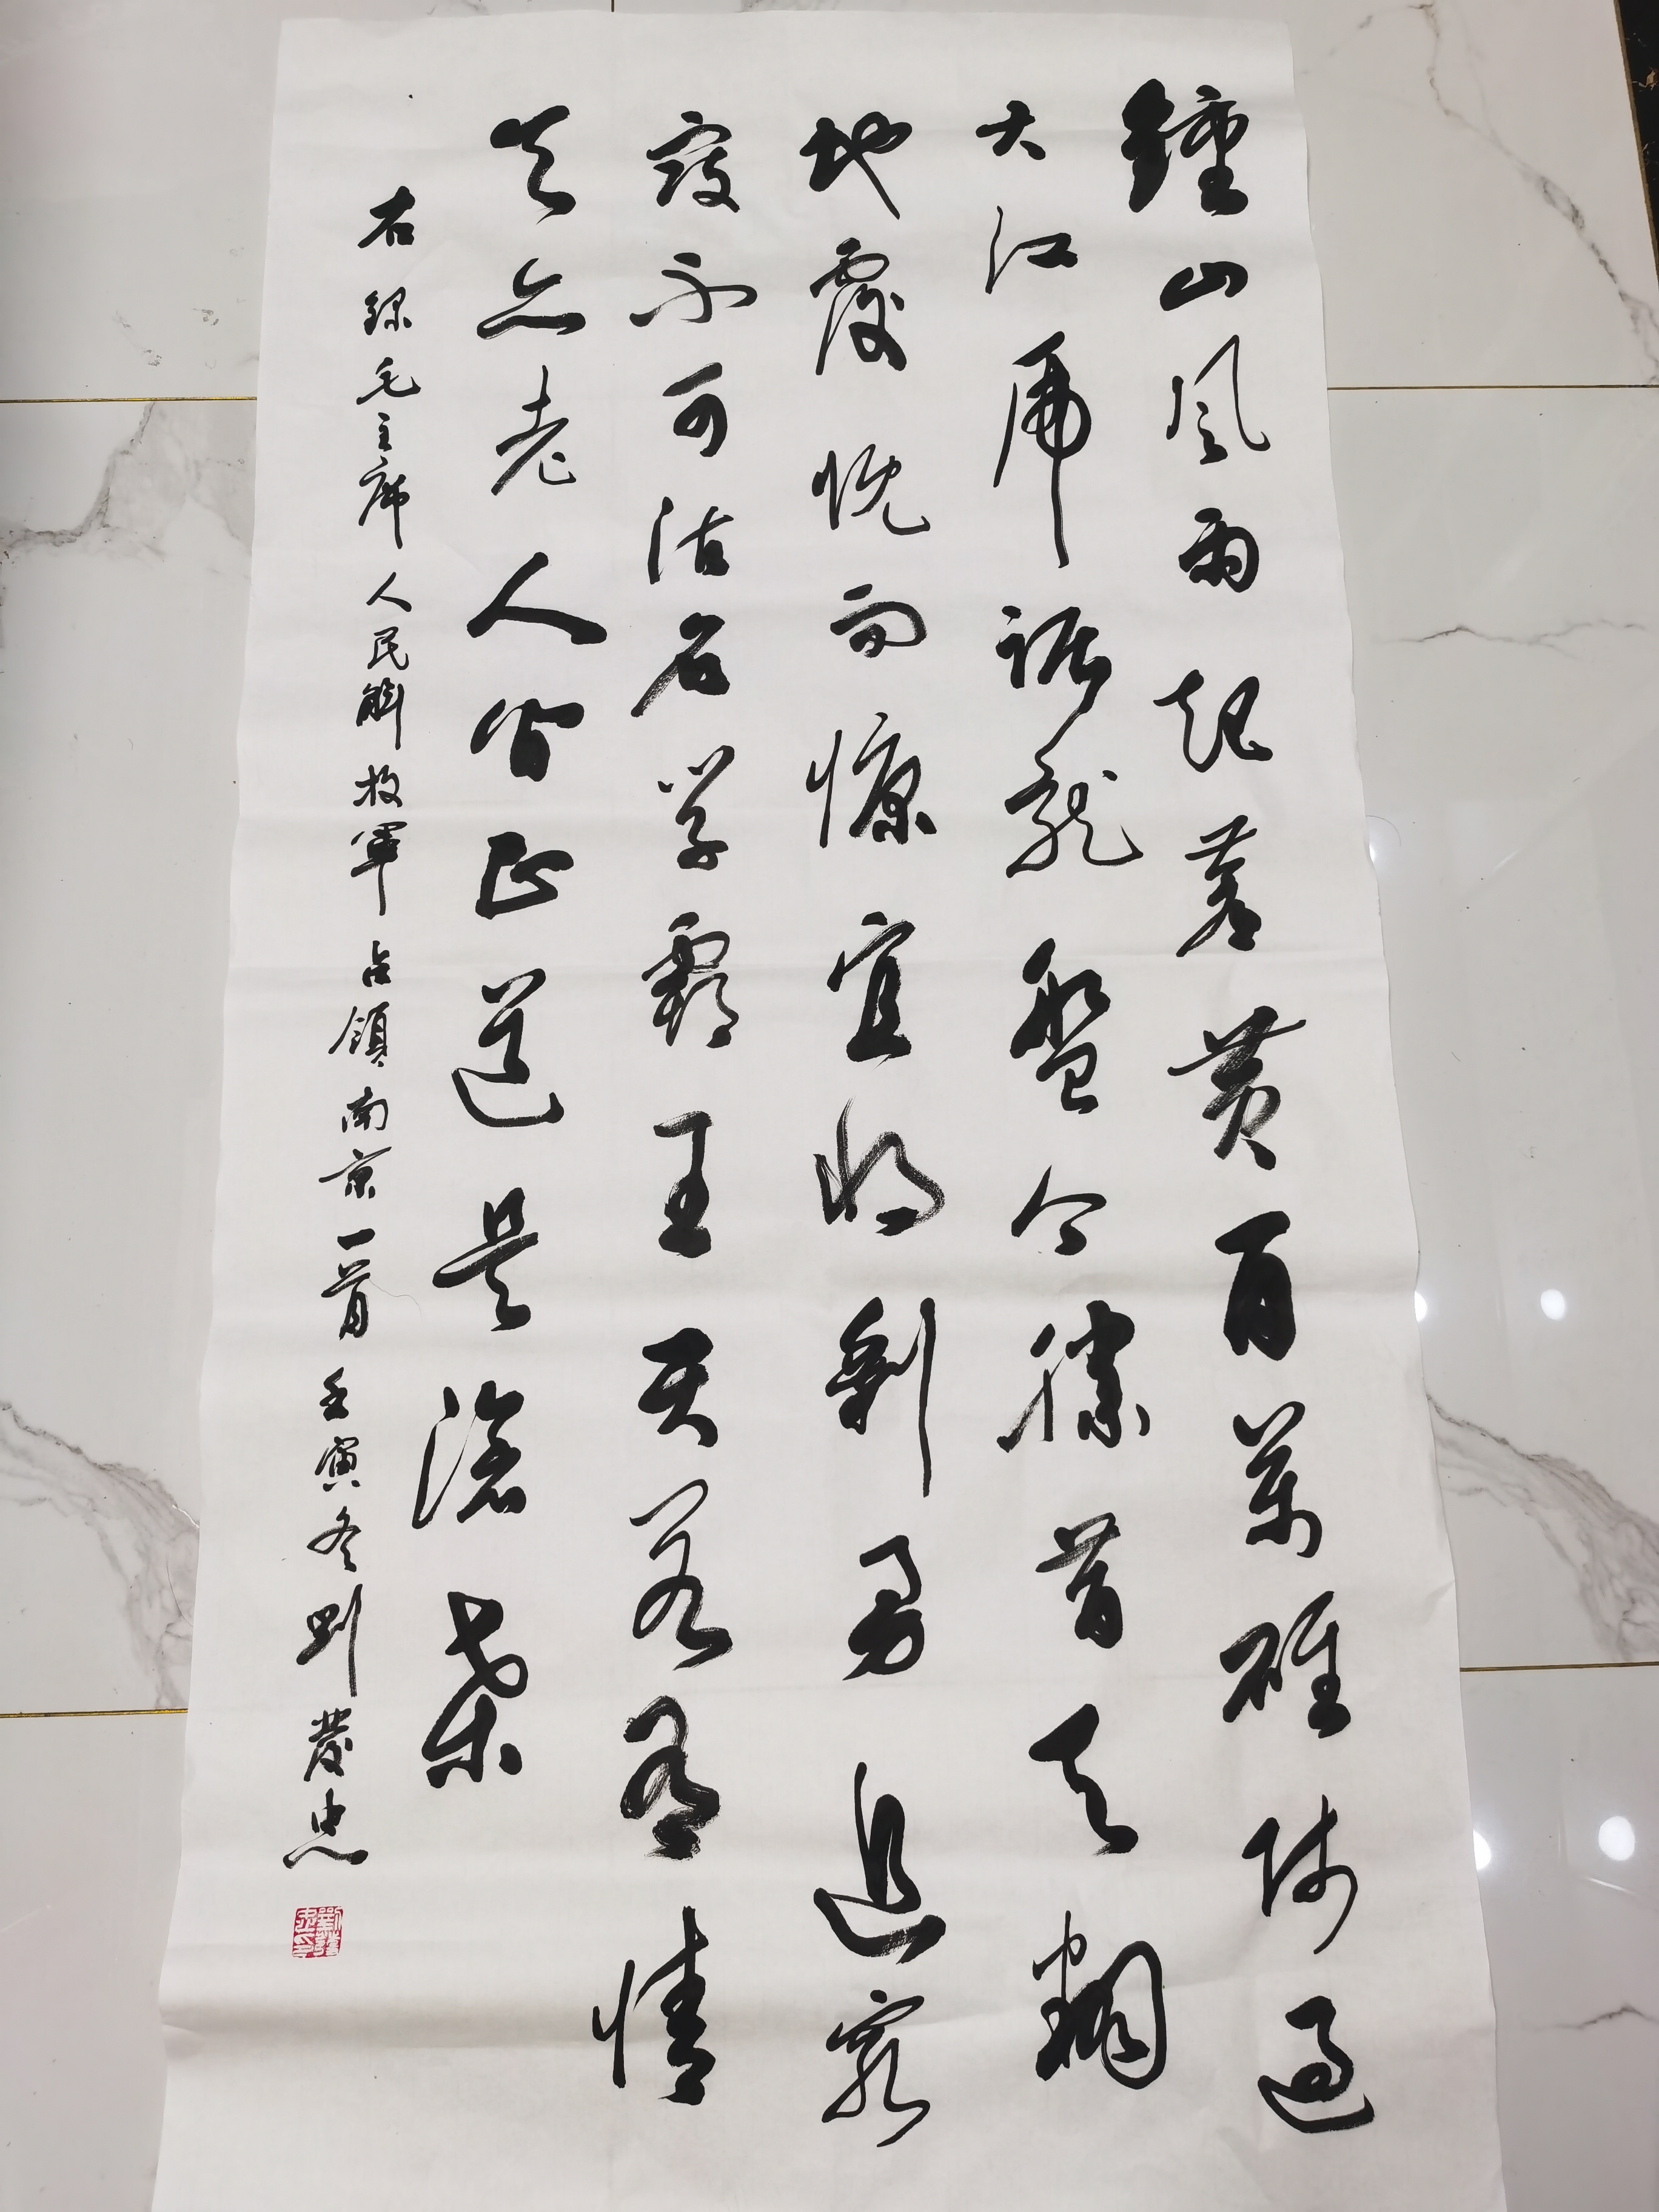 鍾山風雨起蒼黃百萬雄師過
大江虎踞龍盤今勝昔天翻
地覆慨而慷宜將剩勇追窮
寇不可沽名學霸王天若有情
天亦老人間正道是滄桑
右錄毛主席人民解放軍占領南京一首壬寅冬劉發忠
劉發忠印